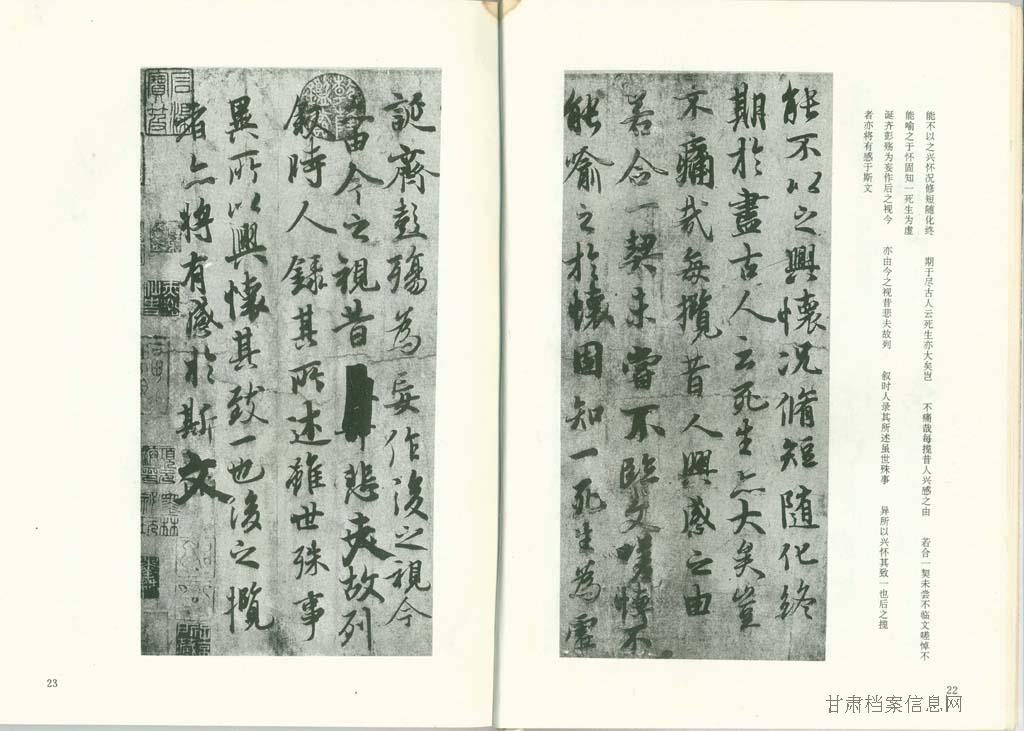 能不以之兴怀况修短随化终 期于尽古人云死生亦大矣岂 不痛哉每揽昔人兴感之由 若合一契未尝不临文嗟悼不
能喻之于怀固知一死生为虚
诞齐彭殇为妄作后之视今 亦由今之视昔悲夫故列 叙时人录其所述虽世殊事 异所以兴怀其致一也后之揽
者亦将有感于斯文
能不以之興懷況脩短隨化終
期於盡古人云死生亦大矣豈
不痛哉每攬昔人興感之由
若合一契未嘗不臨文嗟悼不
能喻之於懷固知一死生為虛
22
誕齊彭殤為妄作後之視今
亦由今之視昔悲夫故列
敘時人錄其所述雖世殊事
異所以興懷其致一也後之攬
者亦將有感於斯文
23
甘肃档案信息网